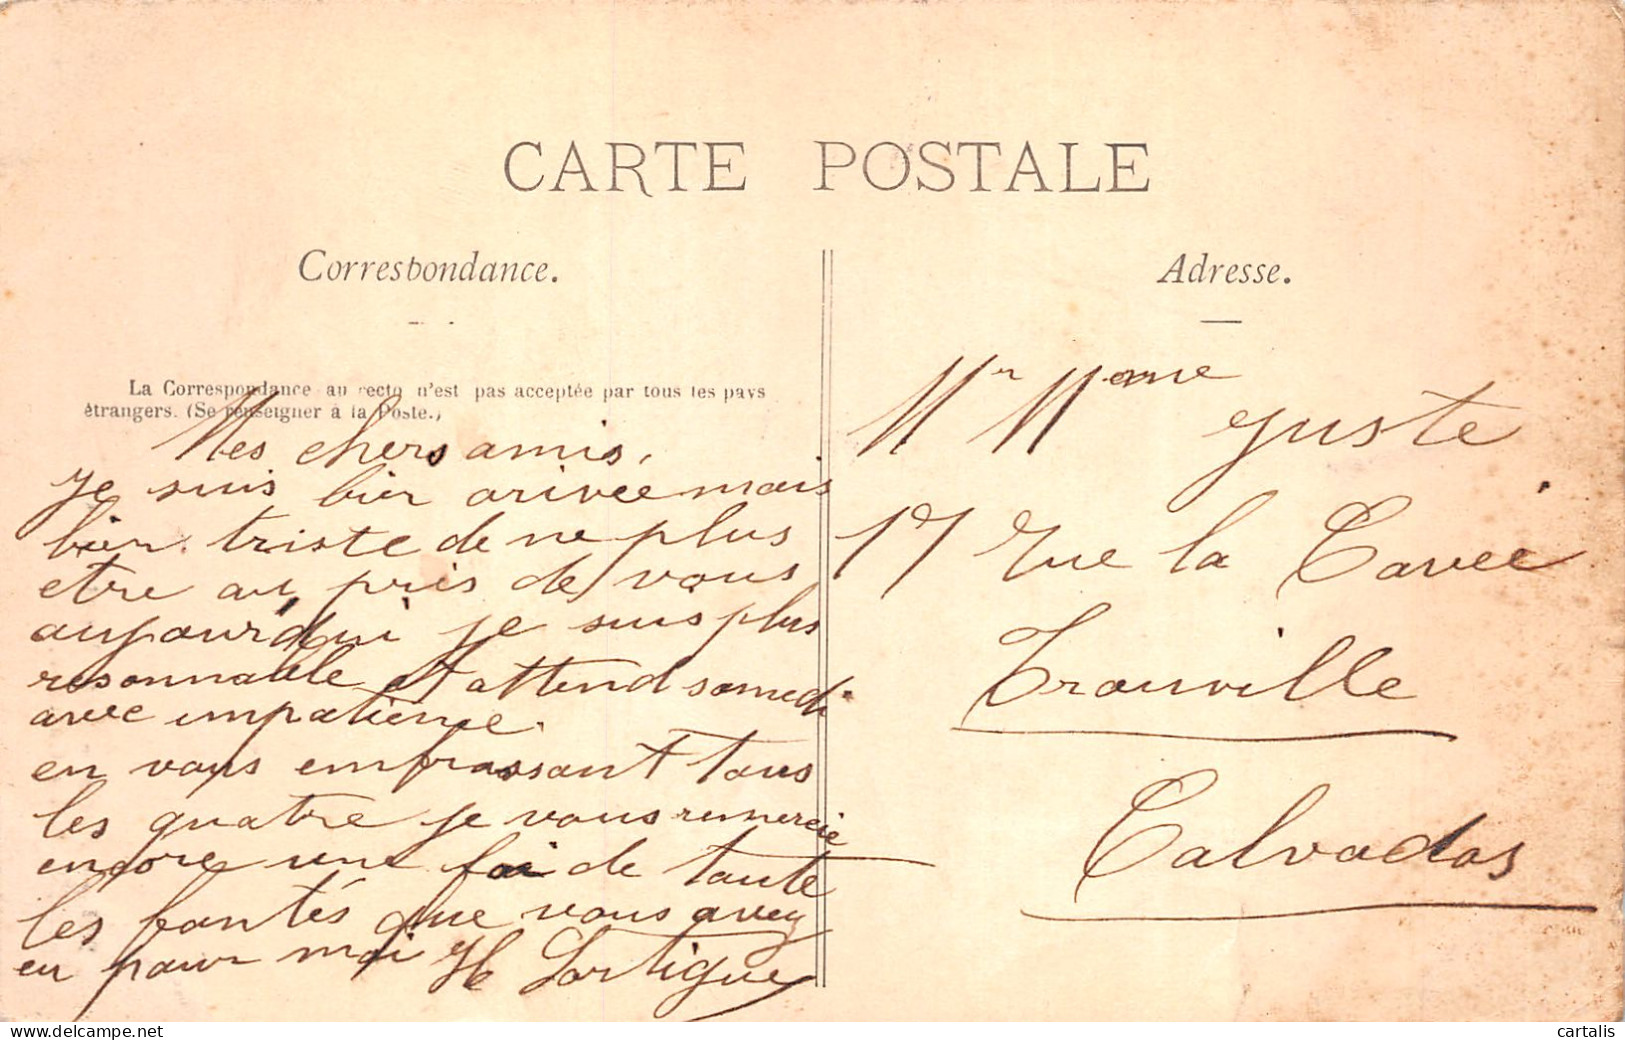 CARTE POSTALE
Correspondance.
Adresse.
La Correspondance au recto n'est pas acceptée par tous les pays
étrangers. (Se renseigner à la Poste.)
Mes chers amis,
Je suis bien arivée mais
bien triste de ne plus
etre au pris de vous
aujourd'dui je suis plus
resonnable et attend samedi
avec impatience.
en vous embrassant tous
les quatre je vous remercie
encore une foi de toute
les bontés que vous avez
eu pour moi H Lortigue
Mr Mme Juste
17 rue la Cavée
Trouville
Calvados
cartalis